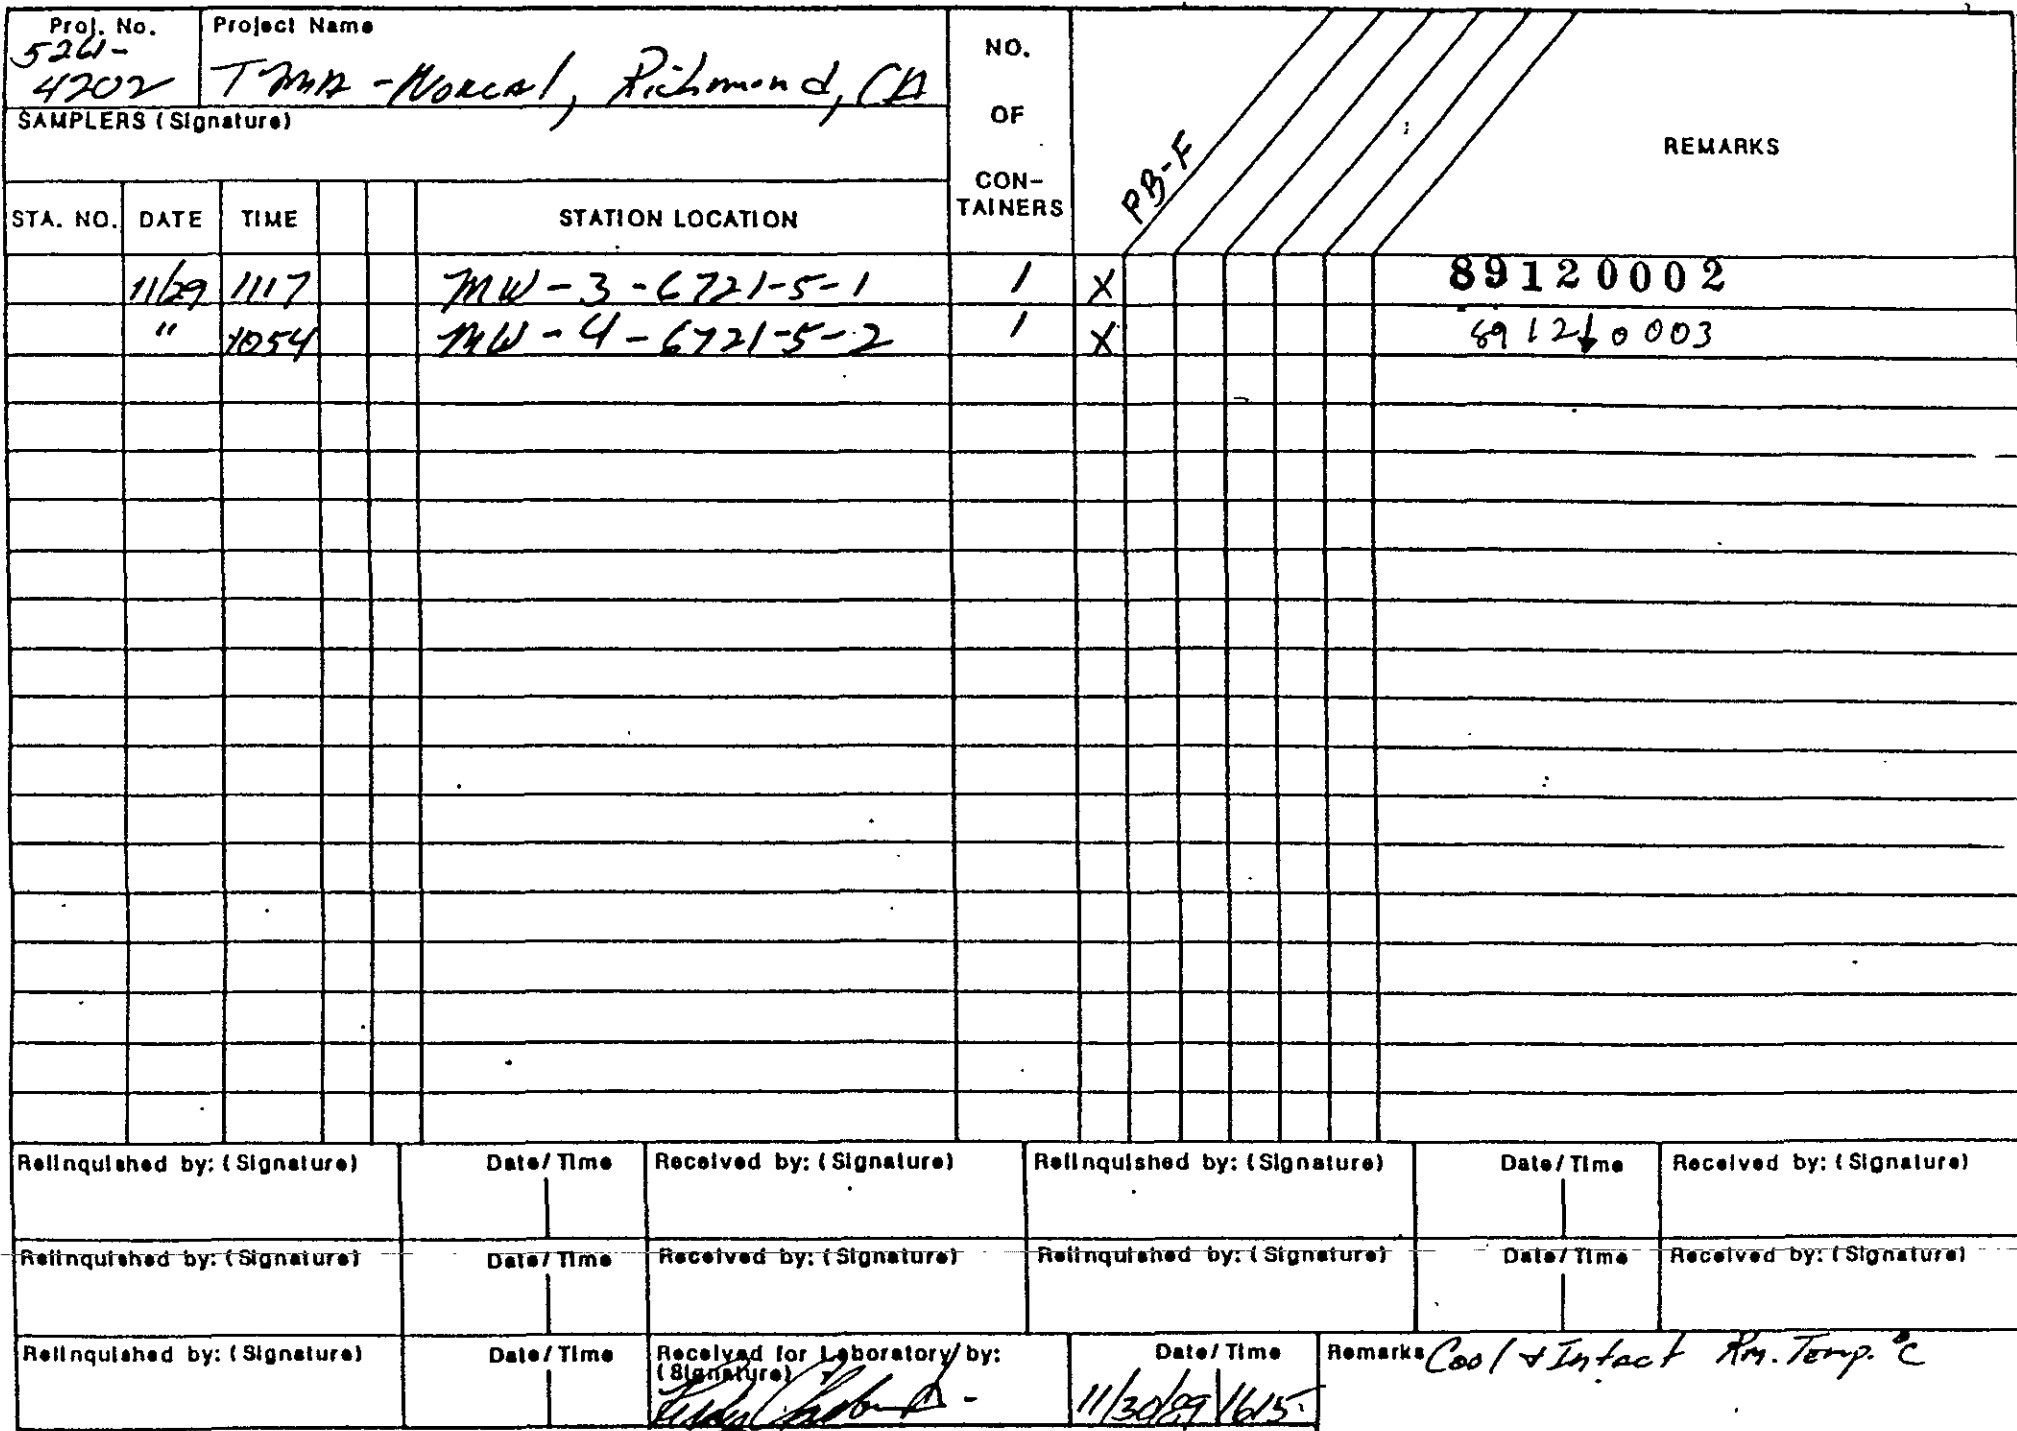 Proj. No.
5261-
4202
Project Name
TMA - Norcal, Richmond, CA
SAMPLERS (Signature)
NO.
OF
CON-
TAINERS
PB-F
REMARKS
STA. NO. DATE TIME STATION LOCATION
11/29 1117 MW-3-6721-5-1 1 X 89120002
" 1054 MW-4-6721-5-2 1 X 8912↓0003
Relinquished by: (Signature) Date/Time Received by: (Signature) Relinquished by: (Signature) Date/Time Received by: (Signature)
Relinquished by: (Signature) Date/Time Received by: (Signature) Relinquished by: (Signature) Date/Time Received by: (Signature)
Relinquished by: (Signature) Date/Time Received for Laboratory by: Date/Time Remarks Cool & Intact Rm. Temp. °C
(Signature)
11/30/89 1615